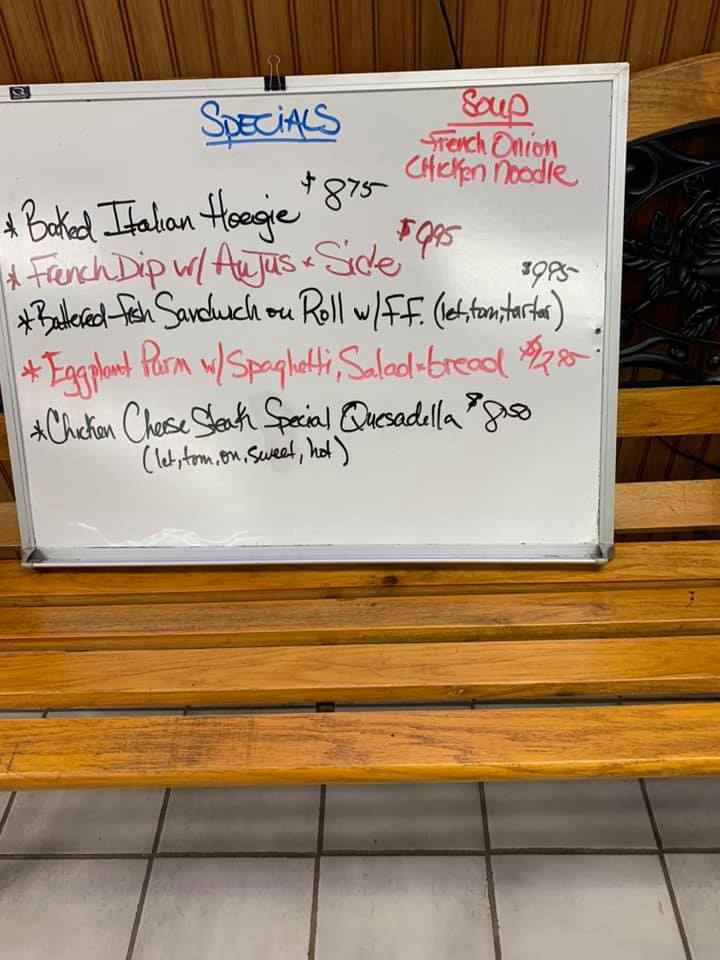 SPECIALS
Soup
French Onion
Chicken Noodle
* Baked Italian Hoagie $875
* French Dip w/ AuJus + Side $995
* Battered Fish Sandwich on Roll w/ F.F. (let, tom, tartar) $995
* Eggplant Parm w/ Spaghetti, Salad + bread $1295
* Chicken Cheese Steak Special Quesadella $850
(let, tom, on, sweet, hot)